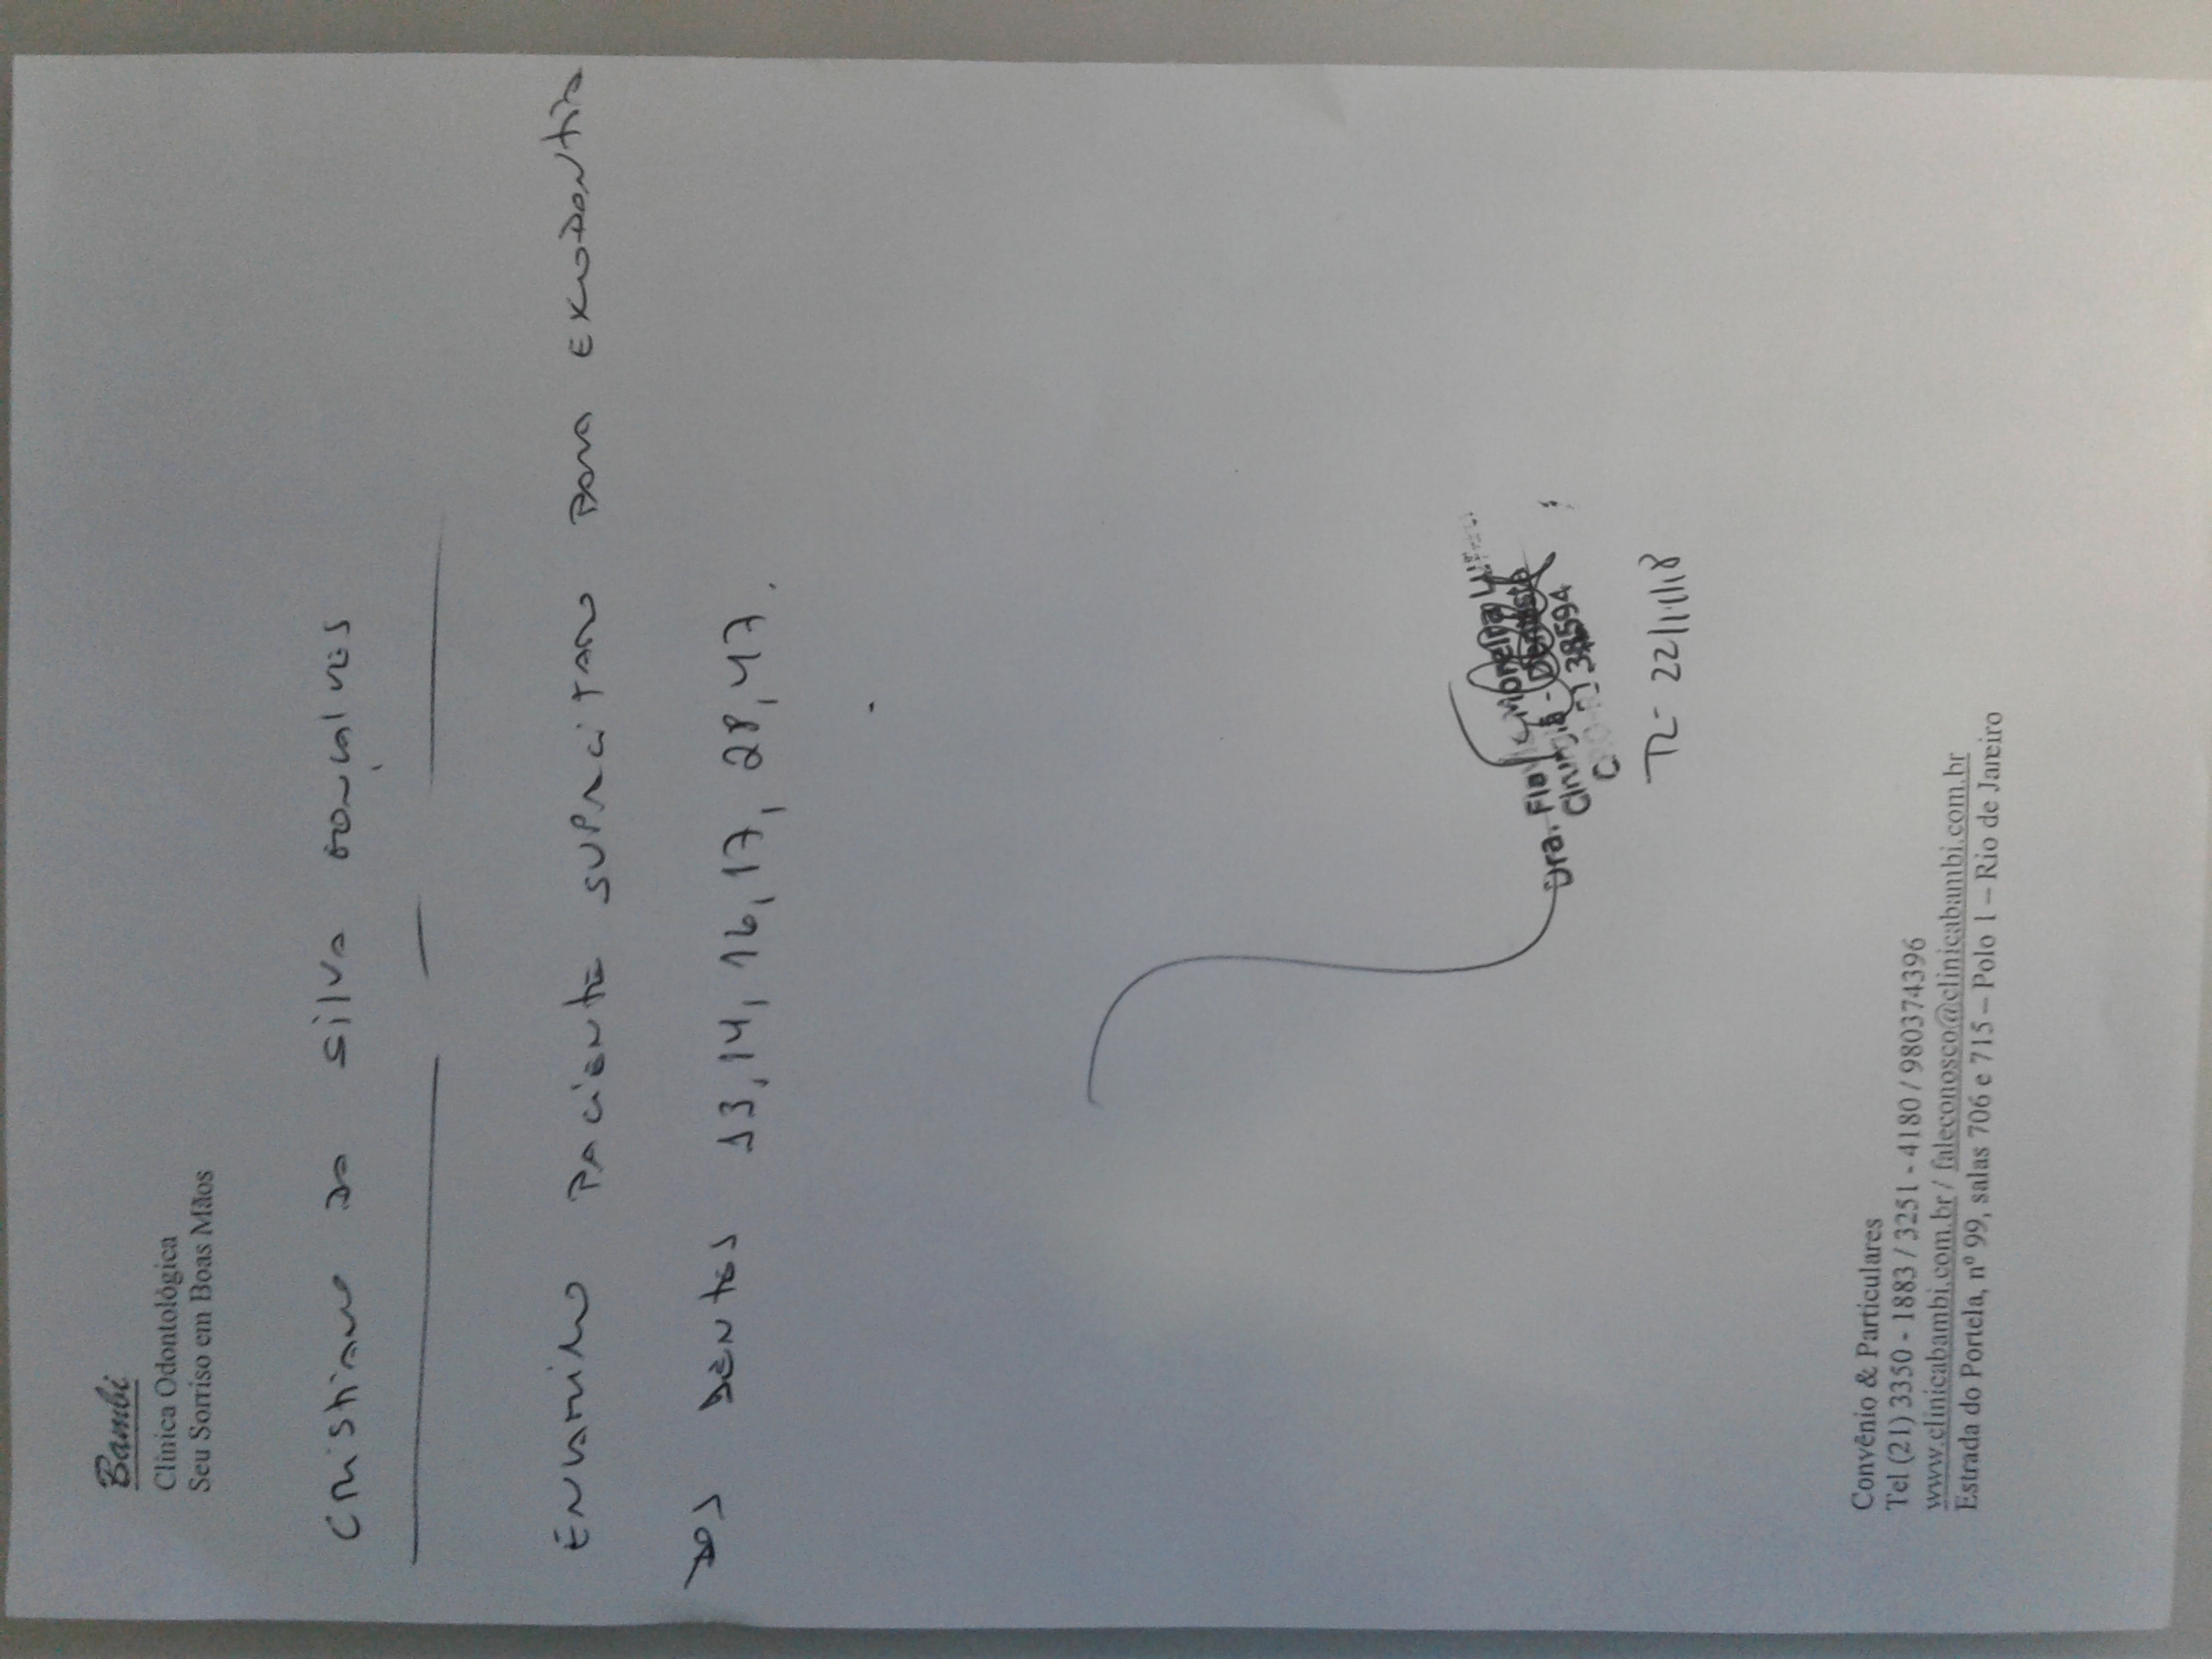 Bambi
Clínica Odontológica
Seu Sorriso em Boas Mãos
Cristiano da Silva Gonçalves
Encaminho paciente supracitado para exodontia
dos dentes 13, 14, 16, 17, 28, 47.
Dra. Moreira
Cirurgiã - Dentista
38594
22/11/18
Convênio & Particulares
Tel (21) 3350 - 1883 / 3251 - 4180 / 980374396
www.clinicabambi.com.br / faleconosco@clinicabambi.com.br
Estrada do Portela, nº 99, salas 706 e 715 – Polo 1 – Rio de Janeiro